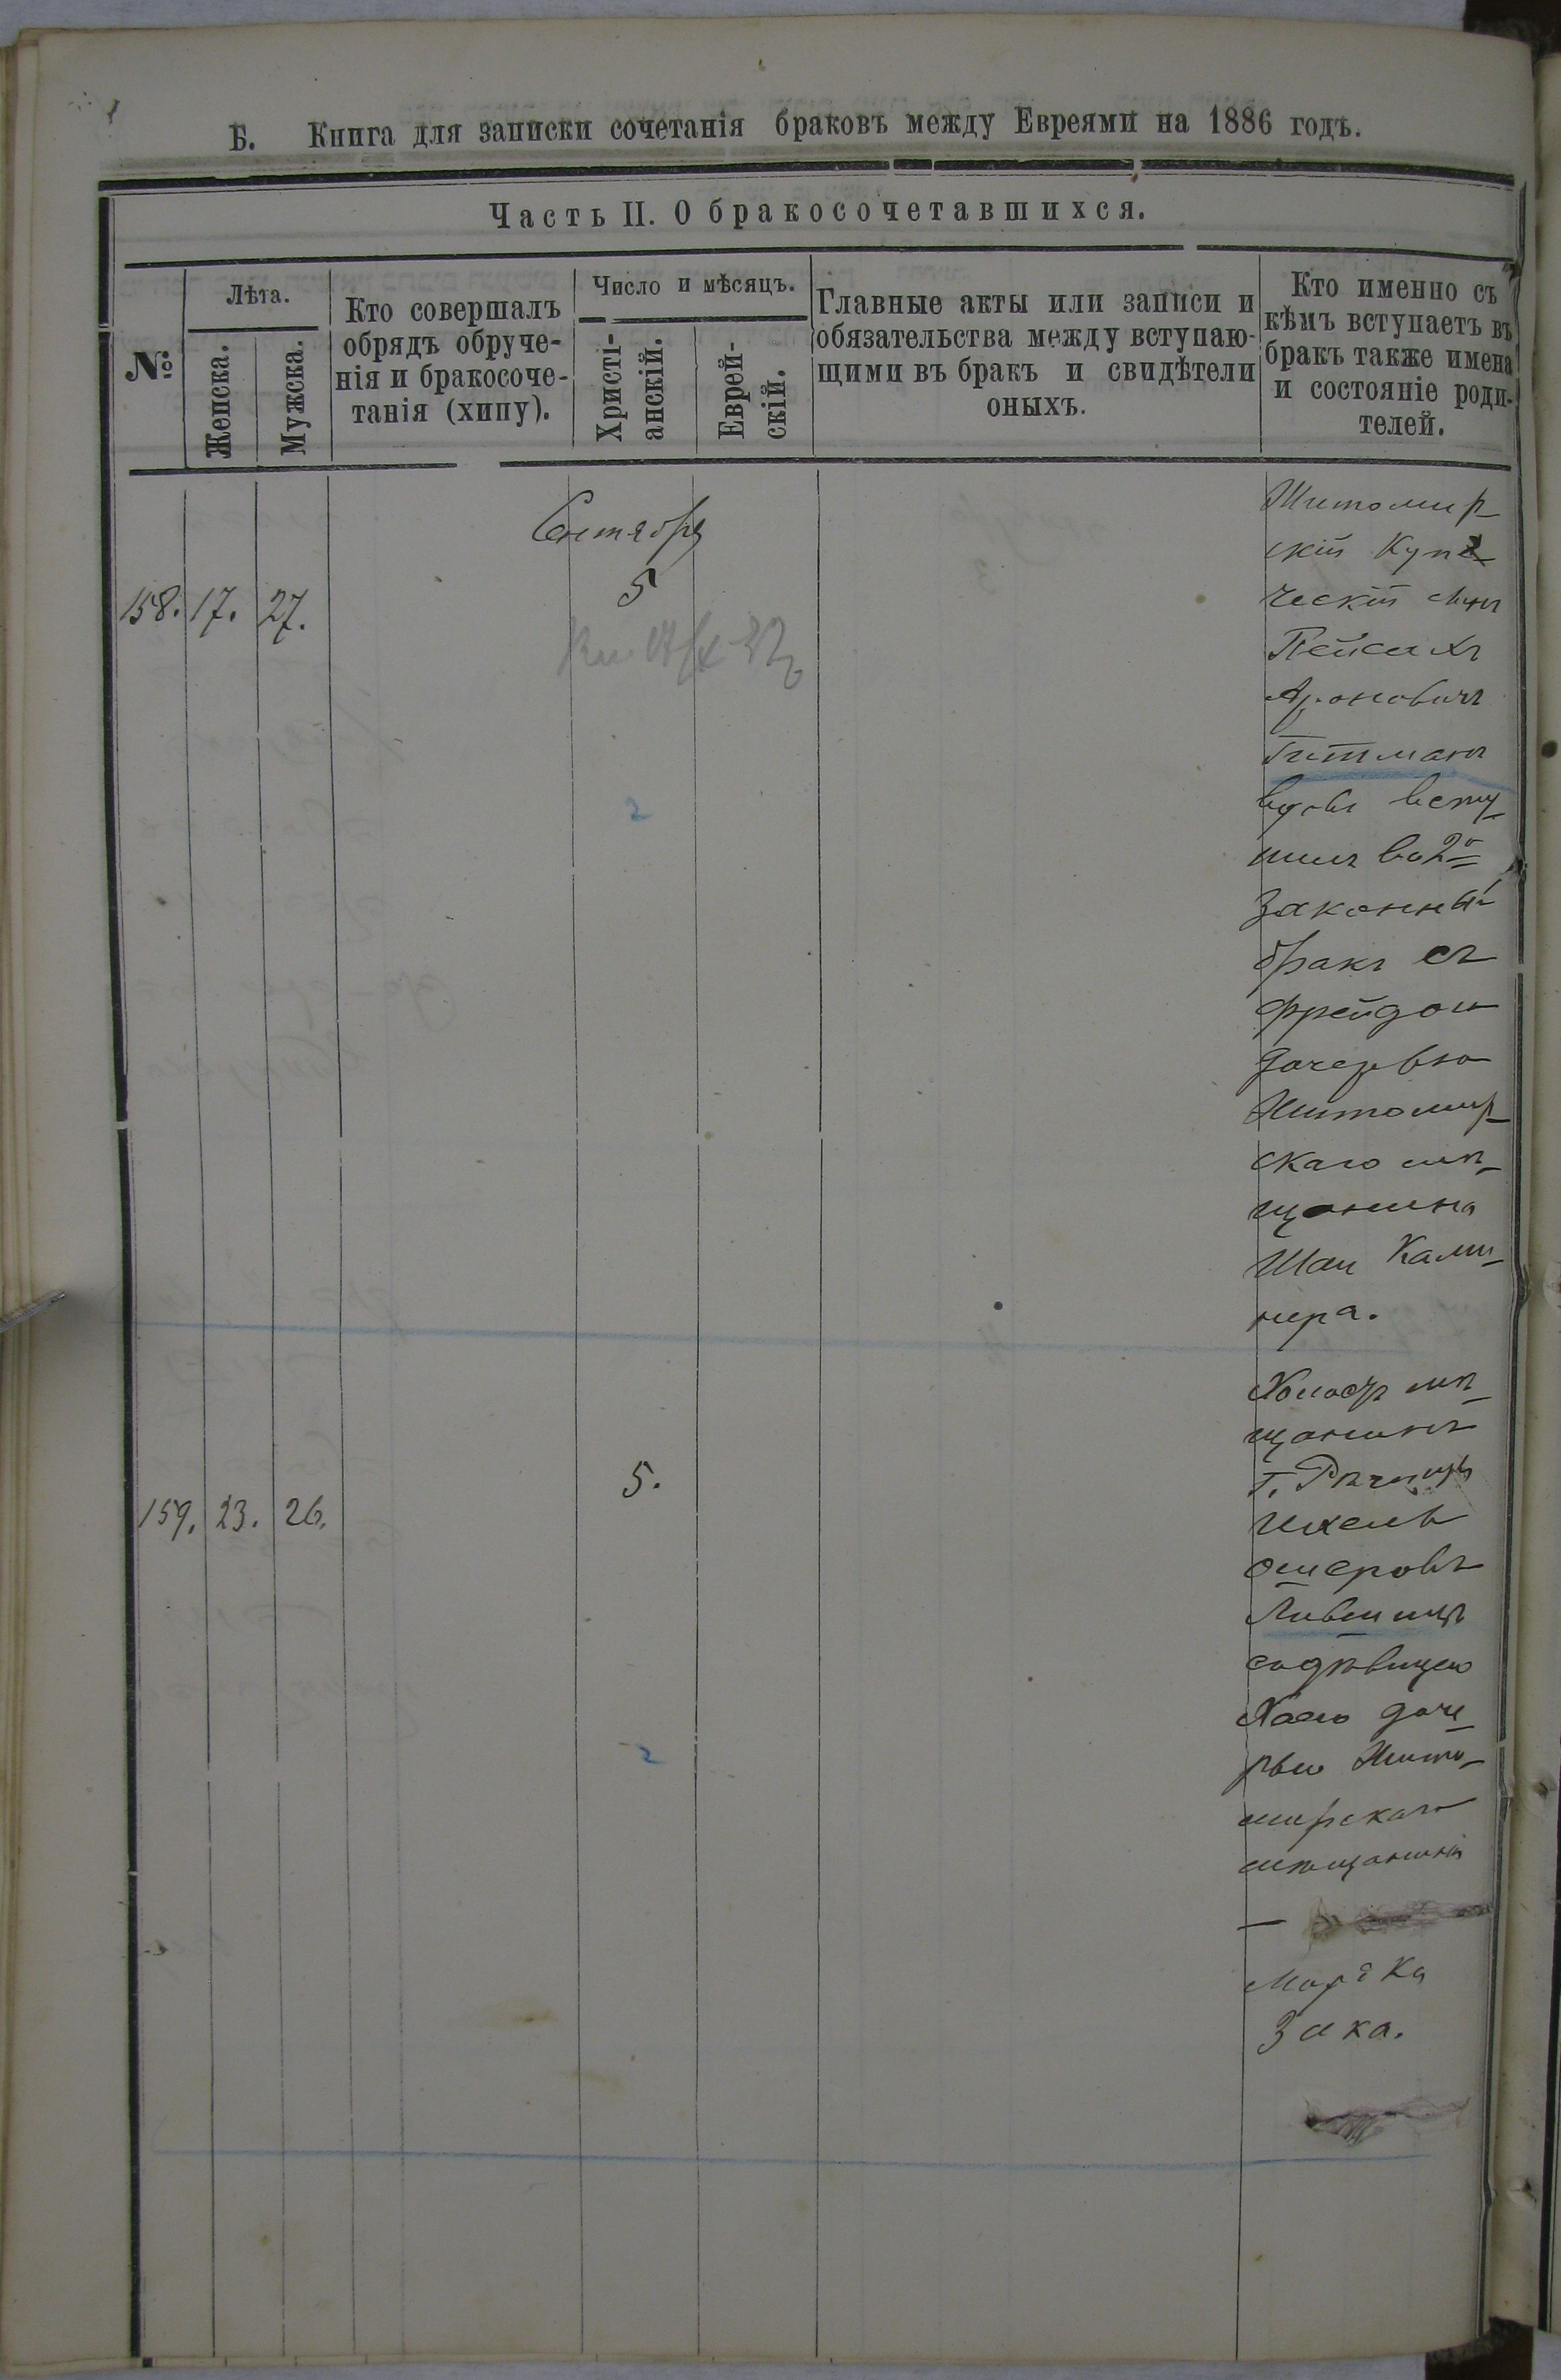 Б. Книга для записки сочетанія браковъ между Евреями на 1886 годъ.
Часть II. О бракосочетавшихся.
№
Лѣта.
Женска.
Мужска.
Кто совершалъ
обрядъ обруче-
нія и бракосоче-
танія (хипу).
Число и мѣсяцъ.
Христі-
анскій.
Еврей-
скій.
Главные акты или записи и
обязательства между вступаю-
щими въ бракъ и свидѣтели
оныхъ.
Кто именно съ
кѣмъ вступаетъ въ
бракъ также имена
и состояніе роди-
телей.
Сентября
158. 17. 27.
5
2
Житомир-
скій Купе-
ческій сынъ
Пейсахъ
Ароновичъ
Гитманъ
вдовъ всту-
пилъ во 2й
законный
бракъ съ
Фрейдою
дочерью
Житомир-
скаго мѣ-
щанина
Шаи Ками-
нера.
159. 23. 26.
5.
2
Холостъ мѣ-
щанинъ
г. Рѣчицы
Ихель
Ошеровъ
Лившицъ
съ дѣвицею
Хаею доче-
рью Жито-
мирскаго
мѣщанина
Мордка
Зака.